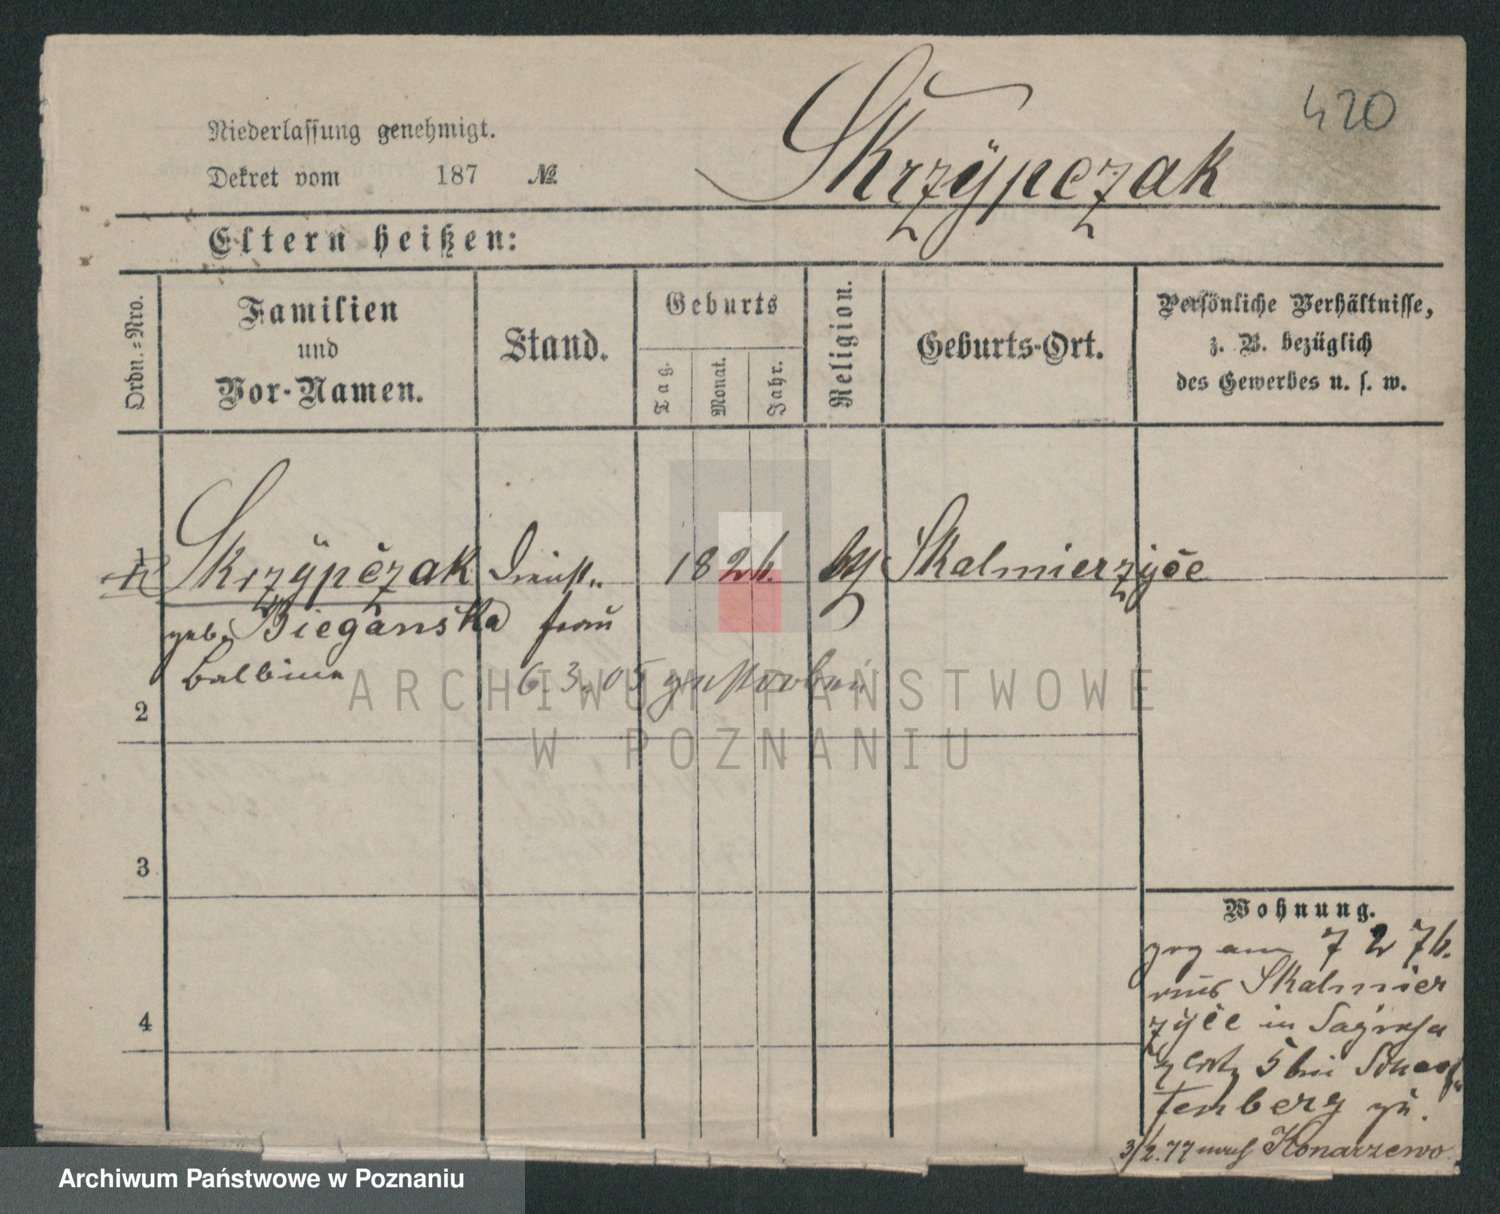 420
Skrzÿpczak
Niederlassung genehmigt.
Dekret vom 187 №
Eltern heißen:
Ordn.-Nro.
Familien
und
Vor-Namen.
Stand.
Geburts
Tag.
Monat.
Jahr.
Religion.
Geburts-Ort.
Persönliche Verhältnisse,
z. B. bezüglich
des Gewerbes u. s. w.
1 Skrzÿpčzak Dienst- 1826. Skalmierzÿče
geb. Biegańska frau
Balbina 6.3.05 gestorben
2
3
4
Wohnung.
zog am 7 2 76.
aus Skalmier
zÿče in
5 bei
temberg zu.
3/2.77 nach Konarzewo
ARCHIWUM PAŃSTWOWE
W POZNANIU
Archiwum Państwowe w Poznaniu